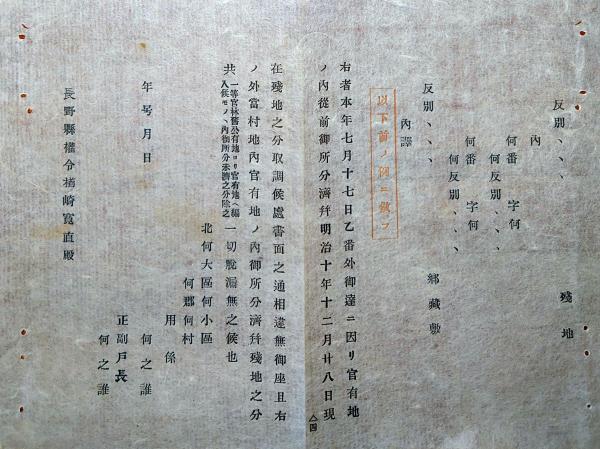 殘地
反別、、、
內
何番 字何
何反別、、、
何番 字何
何反別、、、
鄕藏敷
反別、、、
內譯
以下前ノ例ニ傚フ
右者本年七月十七日乙番外御達ニ因リ官有地
ノ內從前御所分濟幷明治十年十二月廿八日現
△四
在殘地之分取調候處書面之通相違無御座且右
ノ外當村地內官有地ノ內御所分濟幷殘地之分
共 一等官林舊公有地ヨリ官有地ヘ編
入候モノヽ內御所分未濟之分除之 一切脫漏無之候也
北何大區何小區
何郡何村
用係
何之誰
正副戶長
何之誰
年号月日
長野縣權令楢崎寬直殿